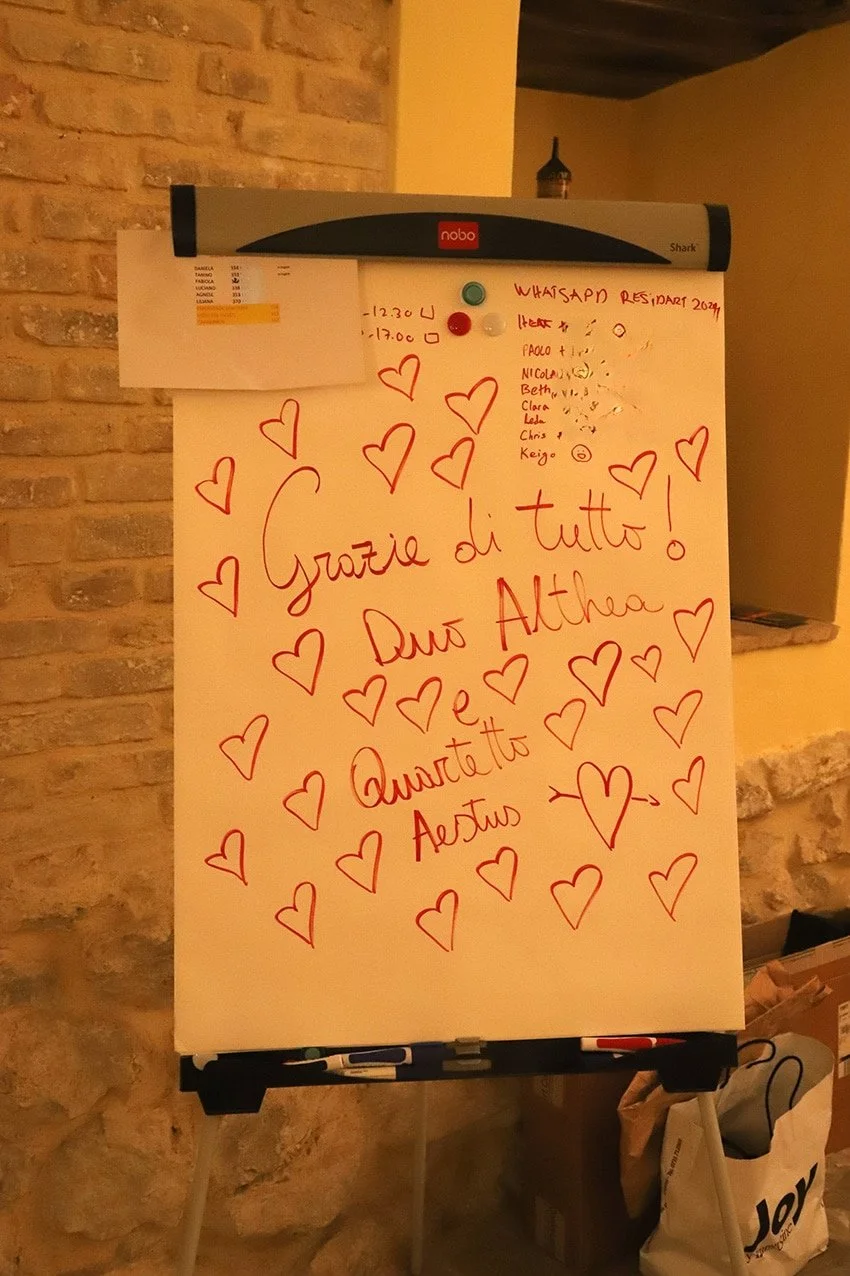 nobo
Shark
DANIELA
FABIOLA
LUCIANO
AGNESE
LILIANA
-12.30
-17.00
WHATSAPP RESIDART 2024
PAOLO +
NICOLA
Beth
Clara
Leda
Chris
Keigo
Grazie di tutto!
Duo Althea
e
Quartetto
Aestus
Joy